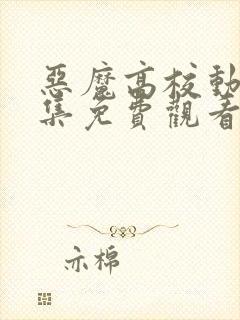 惡魔高校動
集免費觀看
亦棉